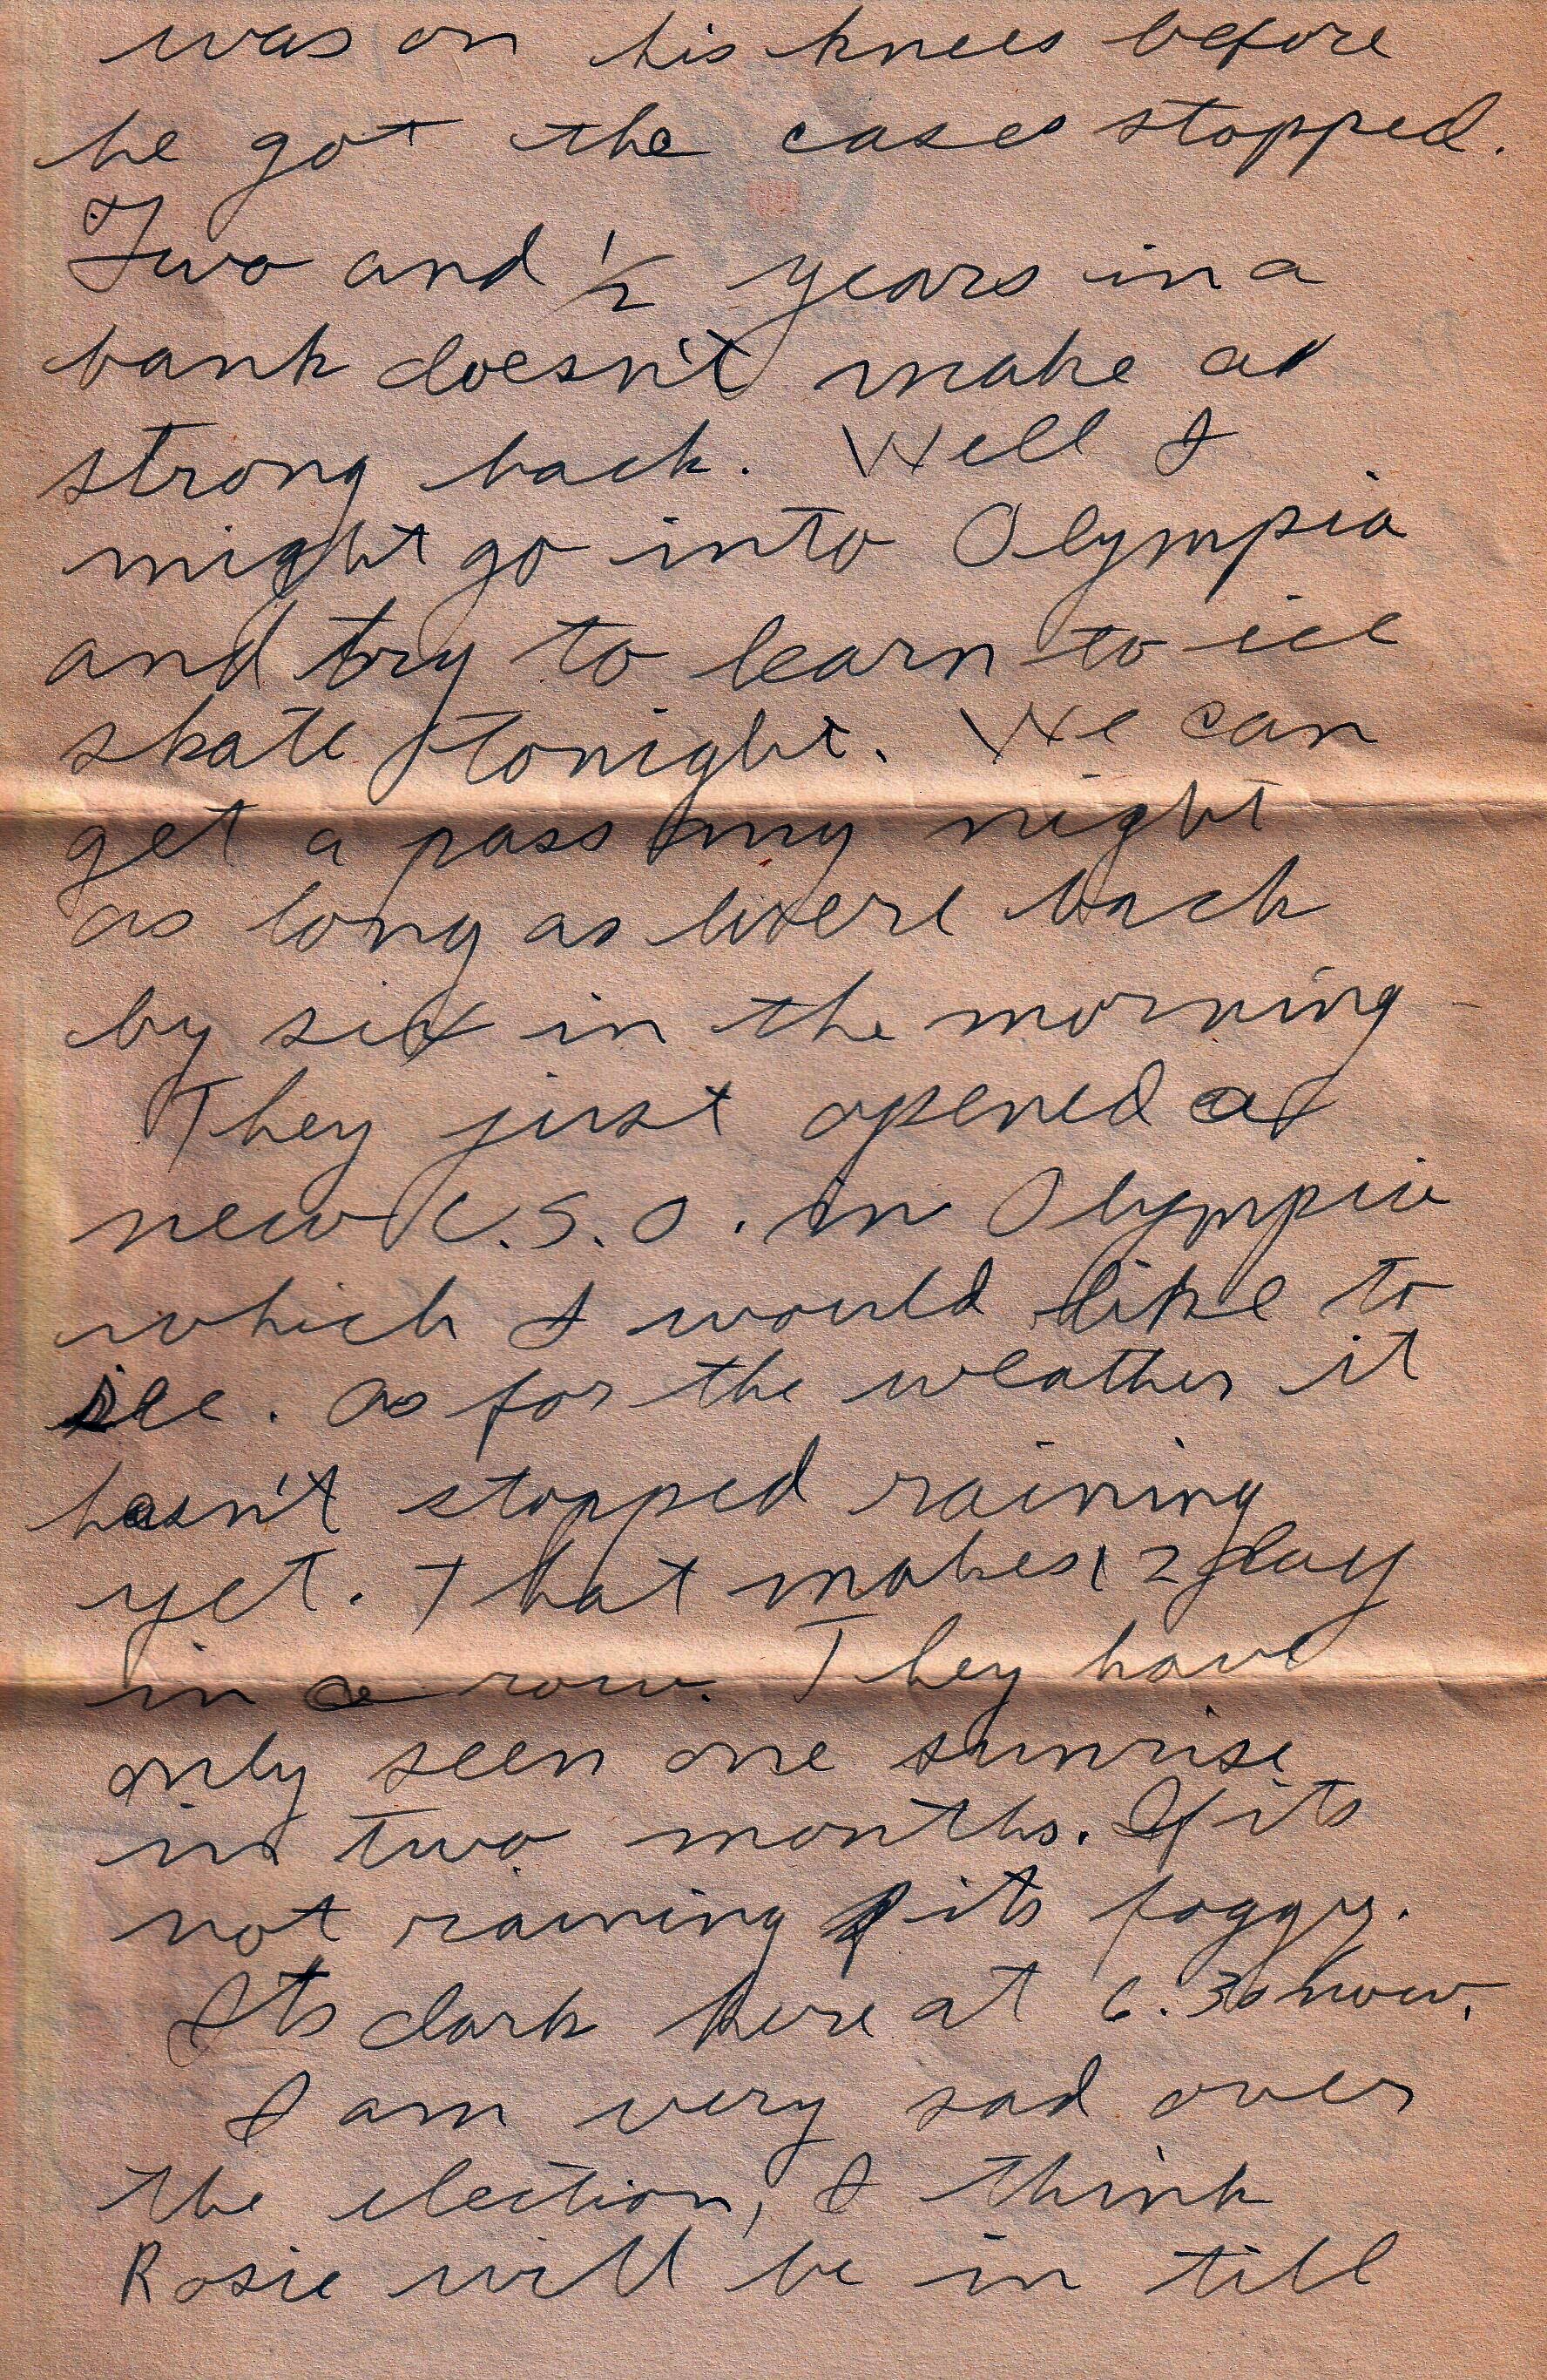 was on his knees before
he got the cases stopped.
Two and 1/2 years in a
bank doesn't make a
strong back. Well I
might go into Olympia
and try to learn to ice
skate tonight. We can
get a pass any night
as long as were back
by six in the morning
They just opened a
new U.S.O. in Olympia
which I would like to
see. as for the weather it
hasn't stopped raining
yet. That makes 12 day
in a row. They have
only seen one sunrise
in two months. If its
not raining its foggy.
Its dark here at 6.30 now.
I am very sad over
the election, I think
Rosie will be in till